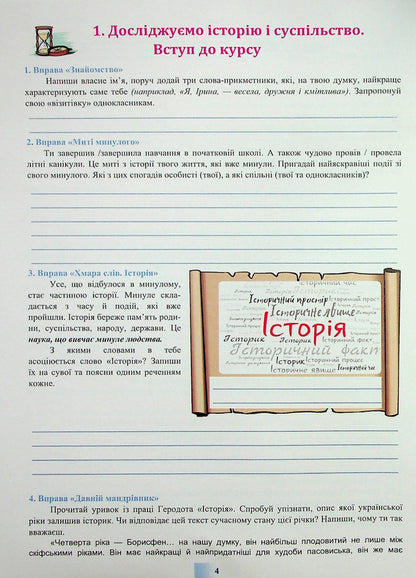 1. Досліджуємо історію і суспільство.
Вступ до курсу
1. Вправа «Знайомство»
Напиши власне ім’я, поруч додай три слова-прикметники, які, на твою думку, найкраще
характеризують саме тебе (наприклад, «Я, Ірина, — весела, дружня і кмітлива»). Запропонуй
свою «візитівку» однокласникам.
2. Вправа «Миті минулого»
Ти завершив /завершила навчання в початковій школі. А також чудово провів / провела
літні канікули. Це миті з історії твого життя, які вже минули. Пригадай найяскравіші події зі
свого минулого. Які з цих спогадів особисті (твої), а які спільні (твої та однокласників)?
3. Вправа «Хмара слів. Історія»
Усе, що відбулося в минулому,
стає частиною історії. Минуле скла-
дається з часу й подій, які вже
пройшли. Історія береже пам’ять роди-
ни, суспільства, народу, держави. Це
наука, що вивчає минуле людства.
З якими словами в тебе
асоціюється слово «Історія»? Запиши
їх на сувої та поясни одним реченням
кожне.
Історичний час
Історичний простір
Історичне явище
Історія
Історик
Історик
Історик
Історичний факт
Історичний факт
Історичне явище
4. Вправа «Давній мандрівник»
Прочитай уривок із праці Геродота «Історія». Спробуй упізнати, опис якої української
ріки залишив історик. Чи відповідає цей текст сучасному стану цієї річки? Напиши, чому ти так
вважаєш.
«Четверта ріка — Борисфен… на нашу думку, він найбільш плодовитий не лише між
скіфськими ріками. Він має найкращі й найпридатніші для худоби пасовиська, він же має
4